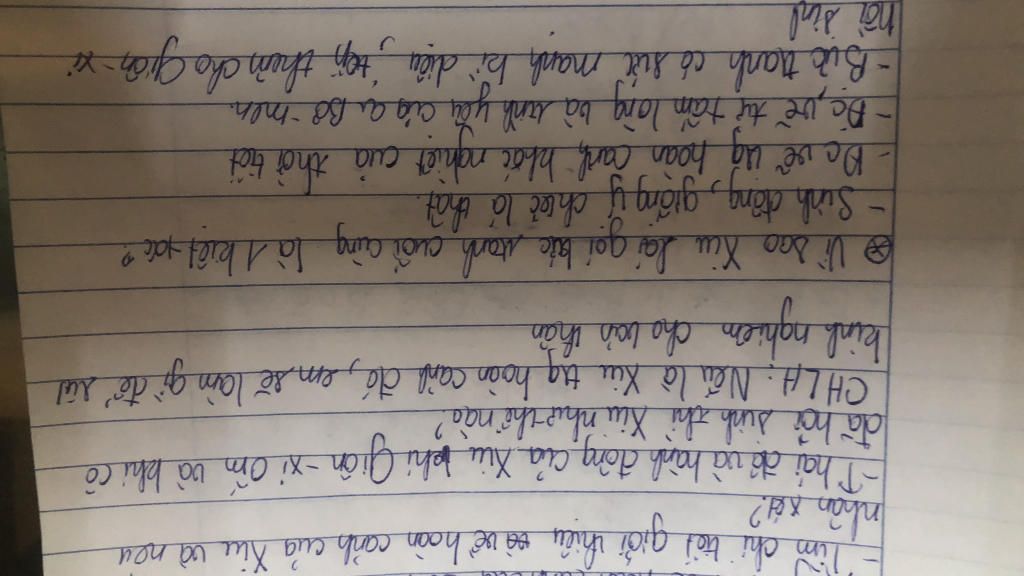 - Tìm chi tiết giới thiệu về hoàn cảnh của Xiu và nêu
nhận xét?
- Thái độ và hành động của Xiu khi Giôn-xi ốm và khi cô
đã hồi sinh thì Xiu như thế nào?
CHLH: Nếu là Xiu trg hoàn cảnh đó, em sẽ làm gì để rút
kinh nghiệm cho bản thân
⊛ Vì sao Xiu lại gọi bức tranh cuối cùng là 1 kiệt tác?
- Sinh động, giống y chiếc lá thật.
- Đc vẽ trg hoàn cảnh khắc nghiệt của thời tiết
- Đc vẽ từ tấm lòng và tình yêu của cụ Bơ-men
- Bức tranh có sức mạnh kì diệu, tiếp thêm cho Giôn-xi
hồi sinh